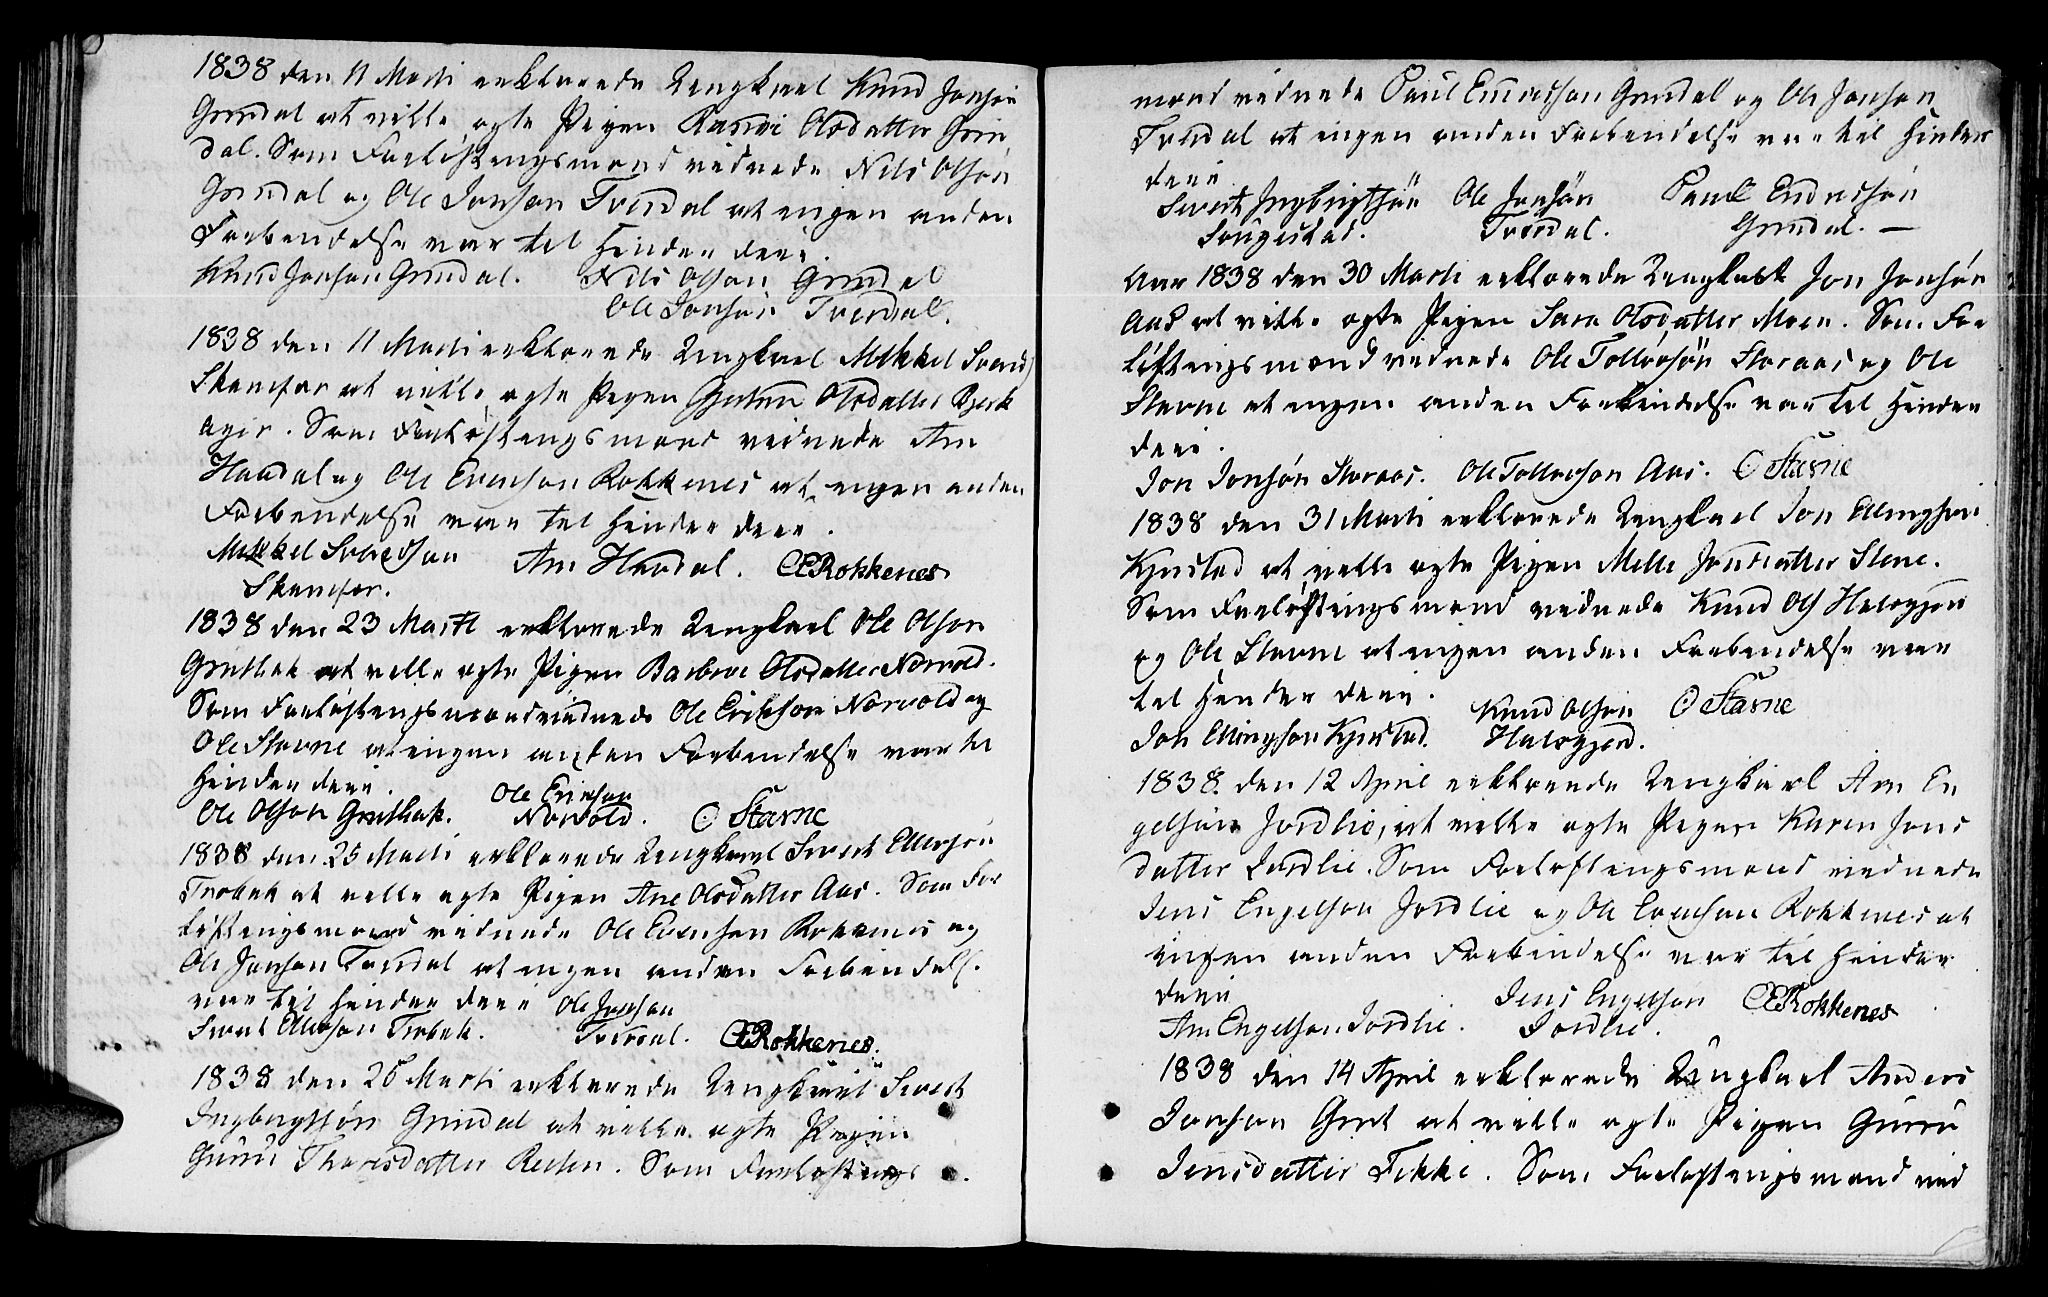 1838 den 11 Marti erklærede Ungkarl Knud Jonsøn
Grindal at ville ægte Pigen Ranvei Olsdatter Grin
dal. Som Forløftningsmænd vidnede Nils Olsøn
Grindal og Ole Jonson Tverdal at ingen anden
Forbindelse var til Hinder deri.
Knud Jonson Grindal. Nils Olson Grindal
Ole Jonson Tverdal.
1838 den 11 Marti erklærede Ungkarl Mikkel Svend
at ville ægte Pigen Olsdatter Bjerk
ager. Som Forløftningsmænd vidnede Arn
Havdal og Ole Evenson Rokkenes at ingen anden
Forbindelse var til Hinder deri.
Mikkel Svendson Arn Havdal. OERokkenes
1838 den 23 Marti erklærede Ungkarl Ole Olson
Gruthak at ville ægte Pigen Barbroe Olsdatter Norvold.
Som Forløftningsmænd vidnede Ole Erikson Norvold og
Ole Stavne at ingen anden Forbindelse var til
Hinder deri. Ole Erikson
Ole Olson Gruthak. Norvold. O Stavne
1838 den 25 Marti erklærede Ungkarl Sivert Ellefsøn
Trobak at ville ægte Pigen Ane Olsdatter Aas. Som For
løftningsmænd vidnede Ole Evensen Rokkenes og
Ole Jonson Tverdal at ingen anden Forbindelse
var til Hinder deri Ole Jonson
Sivert Ellefson Trobak. Tverdal. OERokkenes.
1838 den 25 Marti erklærede Ungkarl Sivert
Ingbrigtsøn Grindal at ville ægte Pigen
Guru Thoresdatter. Som Forløftnings
mænd vidnede Paul Endredson Grindal og Ole Jonson
Tverdal at ingen anden Forbindelse var til Hinder
deri
Sivert Ingbrigtsøn Ole Jonsøn Paul Endredsøn
Tverdal. Grindal. —
Aar 1838 den 30 Marti erklærede Ungkarl Jon Jonsøn
Aas at ville ægte Pigen Sara Olsdatter Moen. Som For
løftningsmænd vidnede Ole Tollevsøn Storaas og Ole
Stavne at ingen anden Forbindelse var til Hinder
deri.
Jon Jonsøn Storaas. Ole Tollevson Aas. O Stavne
1838 den 31 Marti erklærede Ungkarl Jon Ellingson
Kjerstad at ville ægte Pigen Mille Jonsdatter Stene.
Som Forløftningsmænd vidnede Knud Ols Halvgjerd
og Ole Stavne at ingen anden Forbindelse var
til Hinder deri. Knud Olson O Stavne
Jon Ellingson Kjerstad. Halvgjerd.
1838. den 12 April erklærede Ungkarl Arn En
gelsøn Jordlie, at ville ægte Pigen Karen Jons
datter Lardlie. Som Forløftningsmænd vidnede
Jens Engelson Jordlie og Ole Evenson Rokkenes at
ingen anden Forbindelse var til Hinder
deri Jens Engelson OERokkenes
Arn Engelson Jordlie. Jordlie.
1838 den 14 April erklærede Ungkarl Anders
Jonson at ville ægte Pigen Guru
Jensdatter Fikke. Som Forløftningsmænd vid